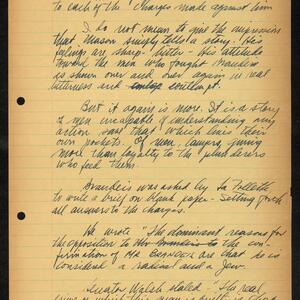 to each of the charges made against him
I do not mean to give the impression
that Mason simply tells a story. His
feelings are sharp - bitter - His attitude
toward the men who fought Brandeis
is shown over and over again in real
bitterness and contempt.
But it again is more. It is a story
of men incapable of understanding any
action save that which lines their
own pockets. Of men, lawyers, giving
more than loyalty to the plunderers
who feed them.
Brandeis was asked by La Follette
to write a brief on blank paper - Setting forth
all answers to the charges.
He wrote "The dominant reasons for
the opposition to the con-
firmation of Mr Brandeis are that he is
considered a radical and a Jew.
Senator Walsh stated "The real